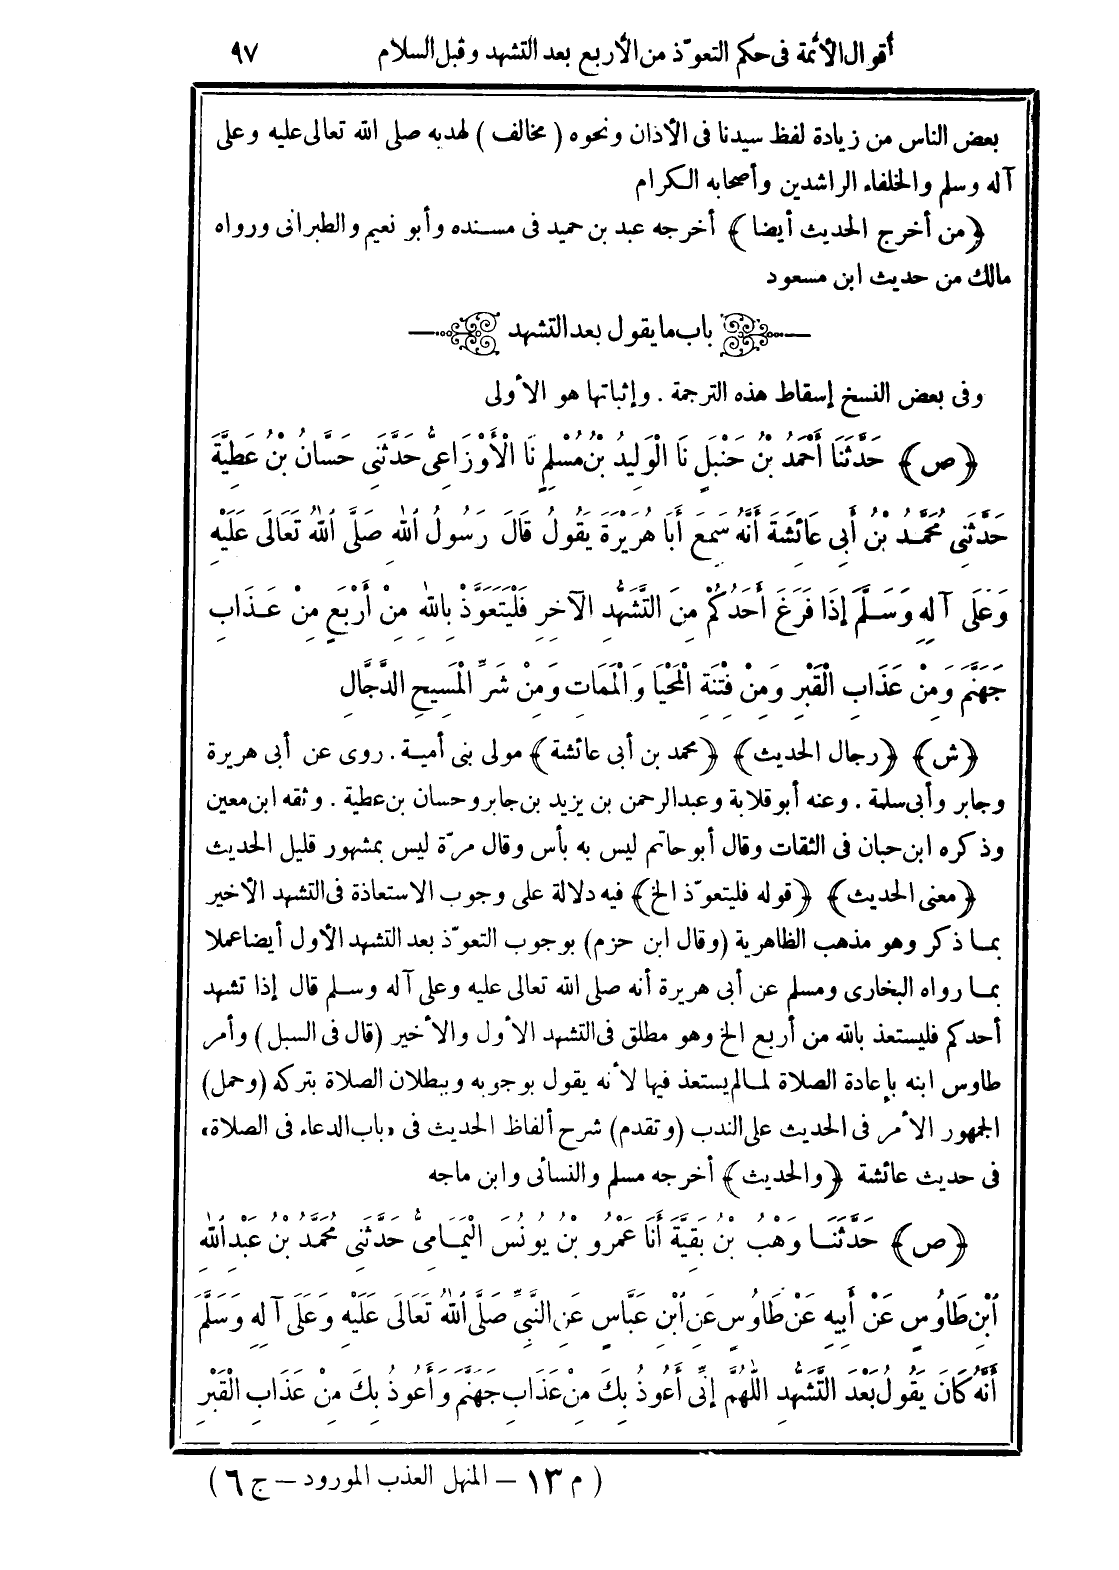 أقوال الأئمة فى حكم التعوّذ من الأربع بعد التشهد وقبل السلام ٩٧
بعض الناس من زيادة لفظ سيدنا فى الأذان ونحوه ( مخالف ) لهديه صلى الله تعالى عليه وعلى
آله وسلم والخلفاء الراشدين وأصحابه الكرام
﴿من أخرج الحديث أيضا﴾ أخرجه عبد بن حميد فى مسنده وأبو نعيم والطبرانى ورواه
مالك من حديث ابن مسعود
باب ما يقول بعد التشهد
وفى بعض النسخ إسقاط هذه الترجمة . وإثباتها هو الأولى
﴿ص﴾ حَدَّثَنَا أَحْمَدُ بْنُ حَنْبَلٍ نَا الْوَلِيدُ بْنُ مُسْلِمٍ نَا الْأَوْزَاعِىُّ حَدَّثَنِى حَسَّانُ بْنُ عَطِيَّةَ
حَدَّثَنِى مُحَمَّدُ بْنُ أَبِى عَائِشَةَ أَنَّهُ سَمِعَ أَبَا هُرَيْرَةَ يَقُولُ قَالَ رَسُولُ اللهِ صَلَّى اللهُ تَعَالَى عَلَيْهِ
وَعَلَى آلِهِ وَسَلَّمَ إِذَا فَرَغَ أَحَدُكُمْ مِنَ التَّشَهُّدِ الْآخِرِ فَلْيَتَعَوَّذْ بِاللهِ مِنْ أَرْبَعٍ مِنْ عَذَابِ
جَهَنَّمَ وَمِنْ عَذَابِ الْقَبْرِ وَمِنْ فِتْنَةِ الْمَحْيَا وَالْمَمَاتِ وَمِنْ شَرِّ الْمَسِيحِ الدَّجَّالِ
﴿ش﴾ ﴿رجال الحديث﴾ ﴿محمد بن أبى عائشة﴾ مولى بنى أمية . روى عن أبى هريرة
وجابر وأبى سلمة . وعنه أبو قلابة وعبد الرحمن بن يزيد بن جابر وحسان بن عطية . وثقه ابن معين
وذكره ابن حبان فى الثقات وقال أبو حاتم ليس به بأس وقال مرّة ليس بمشهور قليل الحديث
﴿معنى الحديث﴾ ﴿قوله فليتعوّذ الخ﴾ فيه دلالة على وجوب الاستعاذة فى التشهد الأخير
بما ذكر وهو مذهب الظاهرية (وقال ابن حزم) بوجوب التعوّذ بعد التشهد الأول أيضا عملا
بما رواه البخارى ومسلم عن أبى هريرة أنه صلى الله تعالى عليه وعلى آله وسلم قال إذا تشهد
أحدكم فليستعذ بالله من أربع الخ وهو مطلق فى التشهد الأول والأخير (قال فى السبل) وأمر
طاوس ابنه بإعادة الصلاة لما لم يستعذ فيها لأنه يقول بوجوبه وببطلان الصلاة بتركه (وحمل)
الجمهور الأمر فى الحديث على الندب (وتقدم) شرح ألفاظ الحديث فى «باب الدعاء فى الصلاة»
فى حديث عائشة ﴿والحديث﴾ أخرجه مسلم والنسائى وابن ماجه
﴿ص﴾ حَدَّثَنَا وَهْبُ بْنُ بَقِيَّةَ أَنَا عَمْرُو بْنُ يُونُسَ الْيَمَامِىُّ حَدَّثَنِى مُحَمَّدُ بْنُ عَبْدِ اللهِ
ابْنِ طَاوُسٍ عَنْ أَبِيهِ عَنْ طَاوُسٍ عَنِ ابْنِ عَبَّاسٍ عَنِ النَّبِىِّ صَلَّى اللهُ تَعَالَى عَلَيْهِ وَعَلَى آلِهِ وَسَلَّمَ
أَنَّهُ كَانَ يَقُولُ بَعْدَ التَّشَهُّدِ اللَّهُمَّ إِنِّى أَعُوذُ بِكَ مِنْ عَذَابِ جَهَنَّمَ وَأَعُوذُ بِكَ مِنْ عَذَابِ الْقَبْرِ
( م ١٣ – المنهل العذب المورود – ج ٦ )